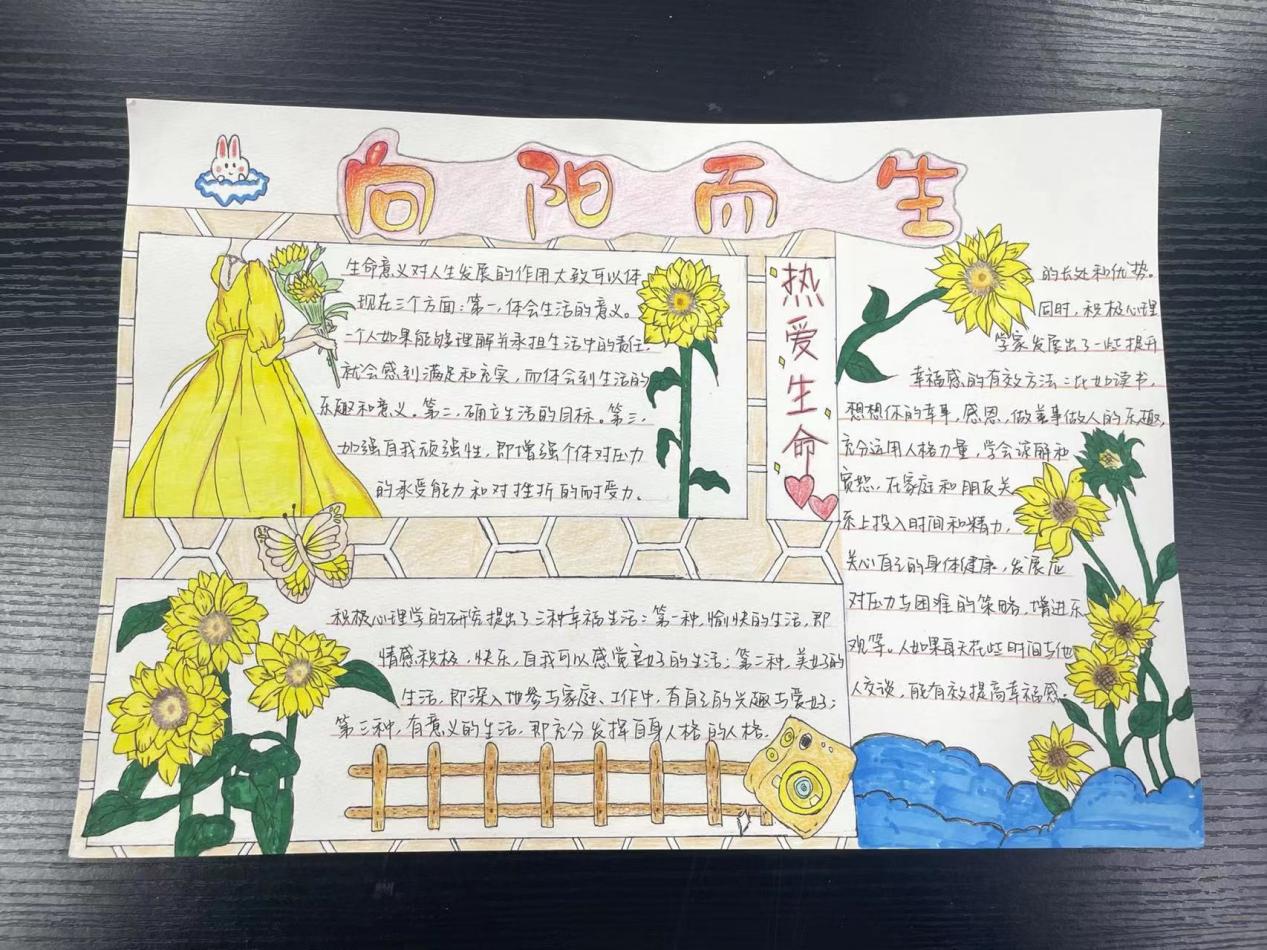 向阳而生
生命意义对人生发展的作用大致可以体
现在三个方面：第一，体会生活的意义。
一个人如果能够理解并承担生活中的责任，
就会感到满足和充实，而体会到生活的
乐趣和意义。第二，确立生活的目标。第三，
加强自我顽强性，即增强个体对压力
的承受能力和对挫折的耐受力。
热爱生命
积极心理学的研究提出了三种幸福生活：第一种，愉快的生活，即
情感积极，快乐，自我可以感觉良好的生活；第二种，美好的
生活，即深入地参与家庭、工作中，有自己的兴趣与爱好；
第三种，有意义的生活，即充分发挥自身人格的人格
的长处和优势。
同时，积极心理
学家发展出了一些提升
幸福感的有效方法：比如读书，
想想你的幸事，感恩，做善事做人的乐趣，
充分运用人格力量，学会谅解和
宽恕，在家庭和朋友关
系上投入时间和精力，
关心自己的身体健康，发展应
对压力与困难的策略，增进乐
观等。人如果每天花些时间与他
人交谈，能有效提高幸福感。